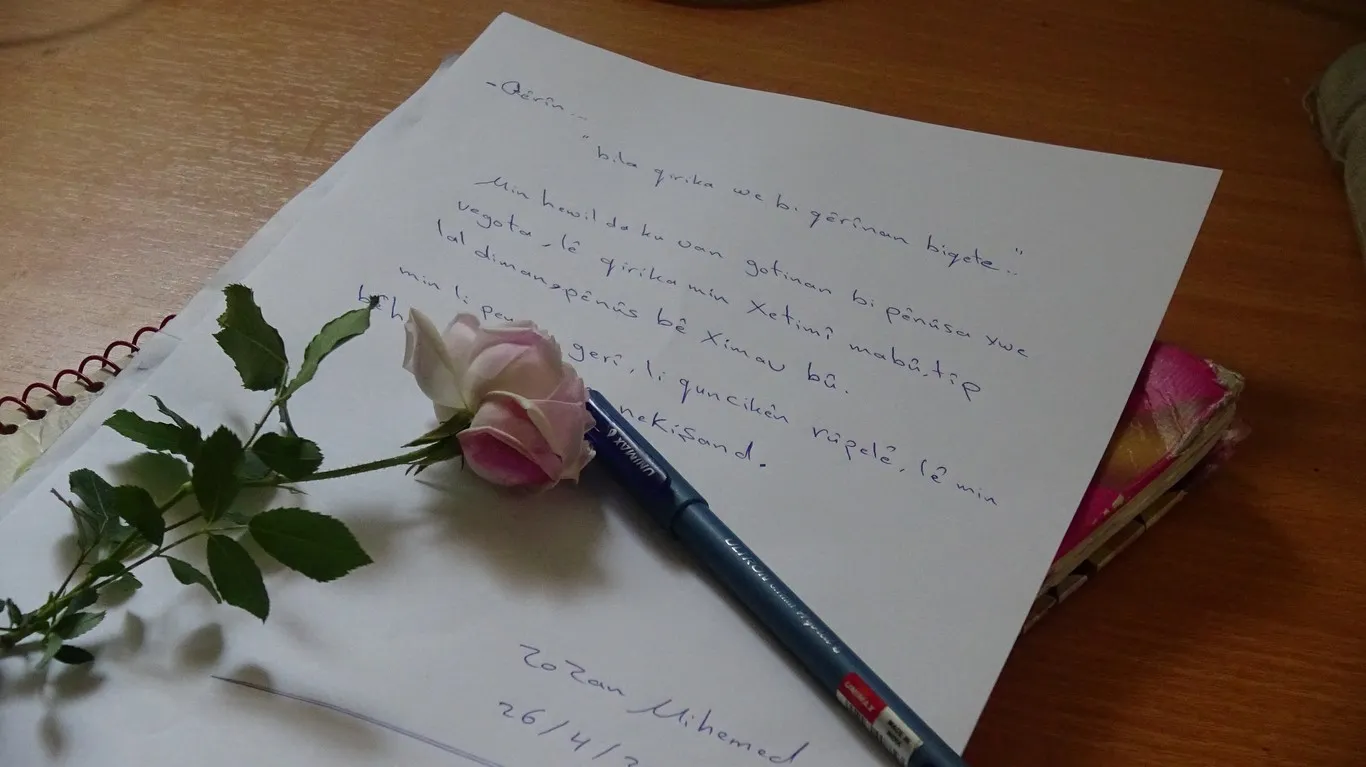 -Qêrîn...
"bila qirika we bi qêrînan biqete.."
Min hewil da ku van gotinan bi pênûsa xwe
vegota, lê qirika min Xetimî mabû, tîp
lal diman, pênûs bê Ximav bû.
min li gerî, li quncikên rûpelê, lê min
nekişand.
UNIMAX
UNIMAX
Zozan Mihemed
26/4/2